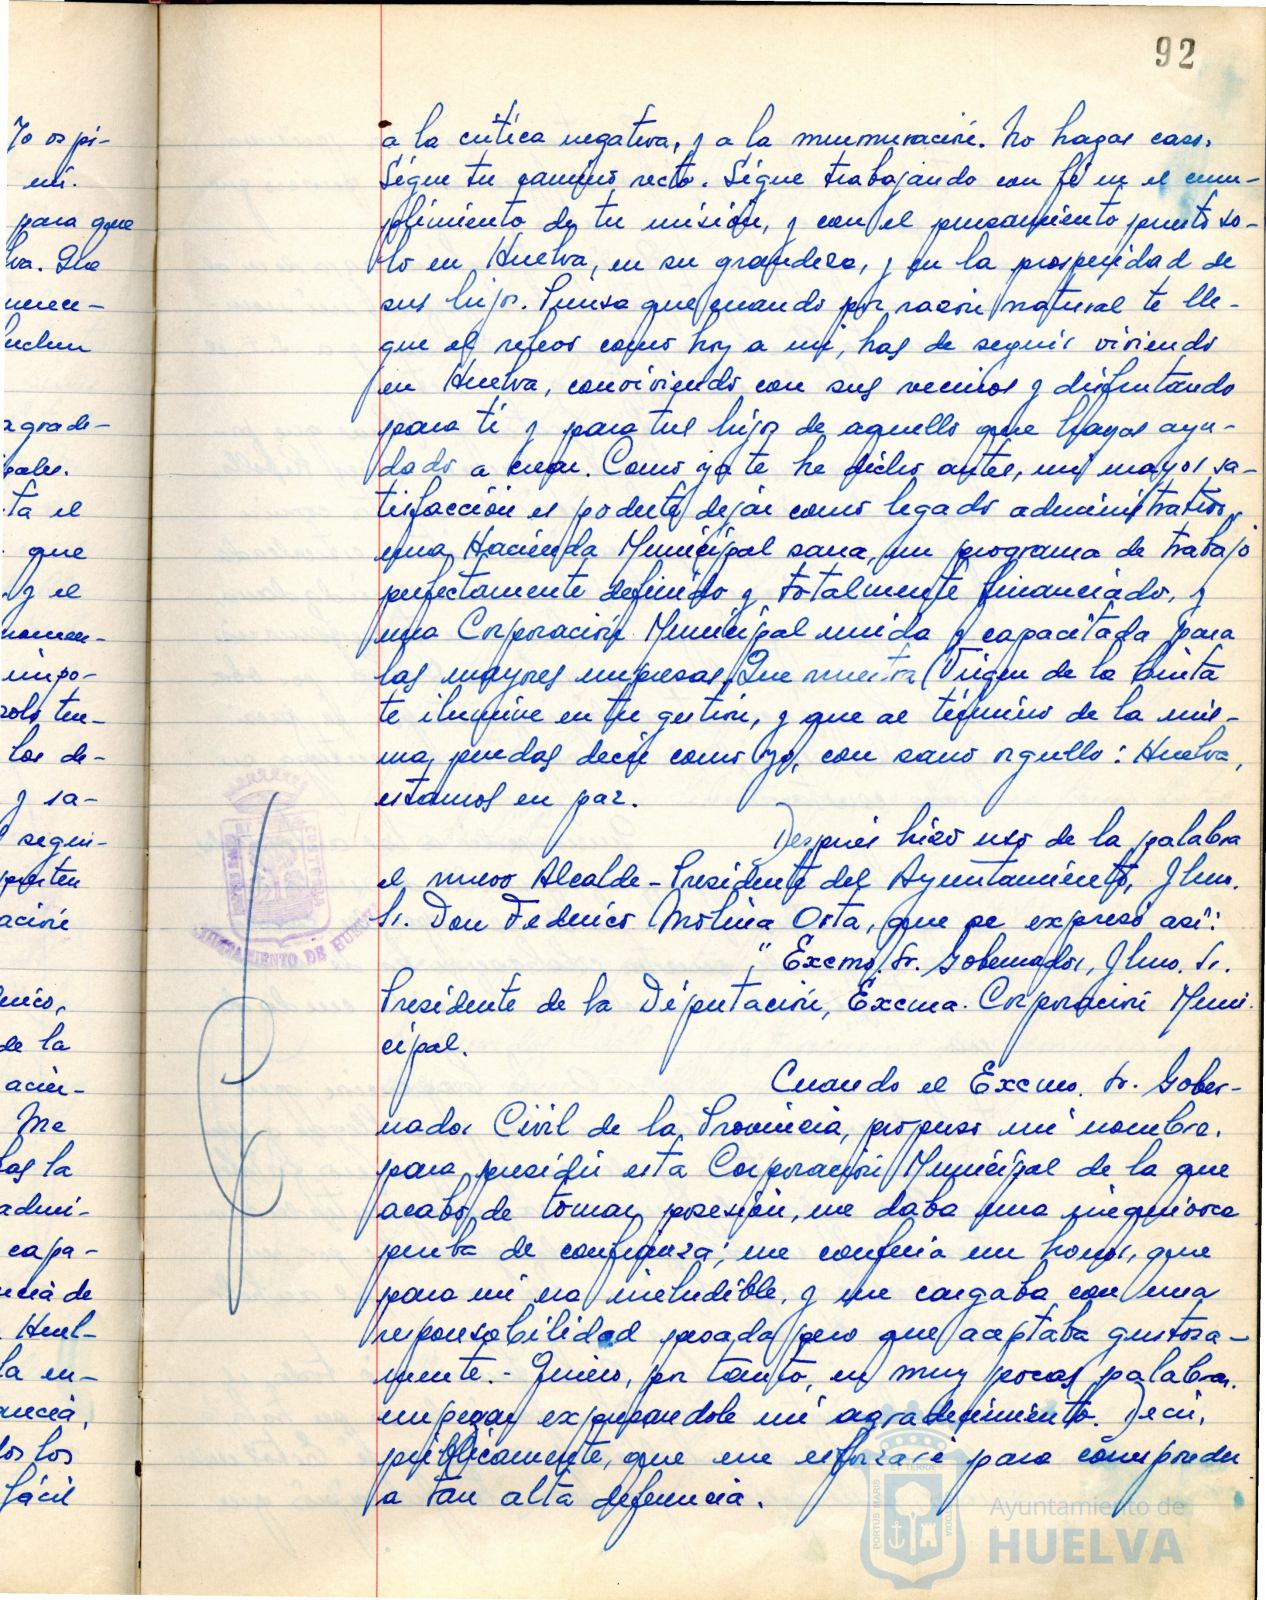 92
a la crítica negativa, y a la murmuración. No hagas caso.
Sigue tu camino recto. Sigue trabajando con fé en el cum-
plimiento de tu misión, y con el pensamiento puesto so-
lo en Huelva, en su grandeza, y en la prosperidad de
sus hijos. Piensa que cuando por razón natural te lle-
gue el relevo como hoy a mi, has de seguir viviendo
en Huelva, conviviendo con sus vecinos y disfrutando
para ti y para tus hijos de aquello que hayas ayu-
dado a crear. Como ya te he dicho antes, mi mayor sa-
tisfacción es poderte dejar como legado administrativo,
una Hacienda Municipal sana, un programa de trabajo
perfectamente definido y totalmente financiado, y
una Corporación Municipal unida y capacitada para
las mayores empresas. Que nuestra Virgen de la Cinta
te ilumine en tu gestión, y que al término de la mis-
ma, puedas decir como yo, con sano orgullo: Huelva,
estamos en paz.
Después hizo uso de la palabra
el nuevo Alcalde-Presidente del Ayuntamiento, Ilmo.
Sr. Don Federico Molina Orta, que se expresó así:
"Excmo. Sr. Gobernador, Ilmo. Sr.
Presidente de la Diputación, Excma. Corporación Muni-
cipal.
Cuando el Excmo. Sr. Gober-
nador Civil de la Provincia, propuso mi nombre,
para presidir esta Corporación Municipal de la que
acabo de tomar posesión, me daba una inequívoca
prueba de confianza; me confería un honor, que
para mi era ineludible, y me cargaba con una
responsabilidad pesada pero que aceptaba gustosa-
mente.- Quiero, por tanto, en muy pocas palabras.
empezar expresandole mi agradecimiento. Decir,
públicamente, que me esforzaré para corresponder
a tan alta deferencia.
Yo os pi-
mi.
para que
lva. Que
merece-
luchen
agrade-
ipales.
ta el
que
y el
momen-
impo-
solo ten-
los de-
y sa-
segui-
ación
de la
Me
las la
admi-
capa-
ncia de
Huel-
la en-
los los
fácil
AYUNTAMIENTO DE HUELVA
PORTUS MARIS
ET TERRAE
CUSTODIA
Ayuntamiento de
HUELVA